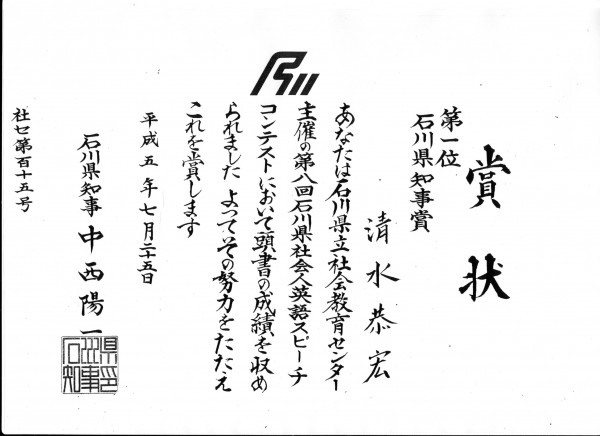 賞状
第一位
石川県知事賞
清水恭宏
あなたは石川県立社会教育センター
主催の第八回石川県社会人英語スピーチ
コンテストにおいて頭書の成績を収め
られました よってその努力をたたえ
これを賞します
平成五年七月二十五日
石川県知事 中西陽一
石川県知事印
社セ第百十五号